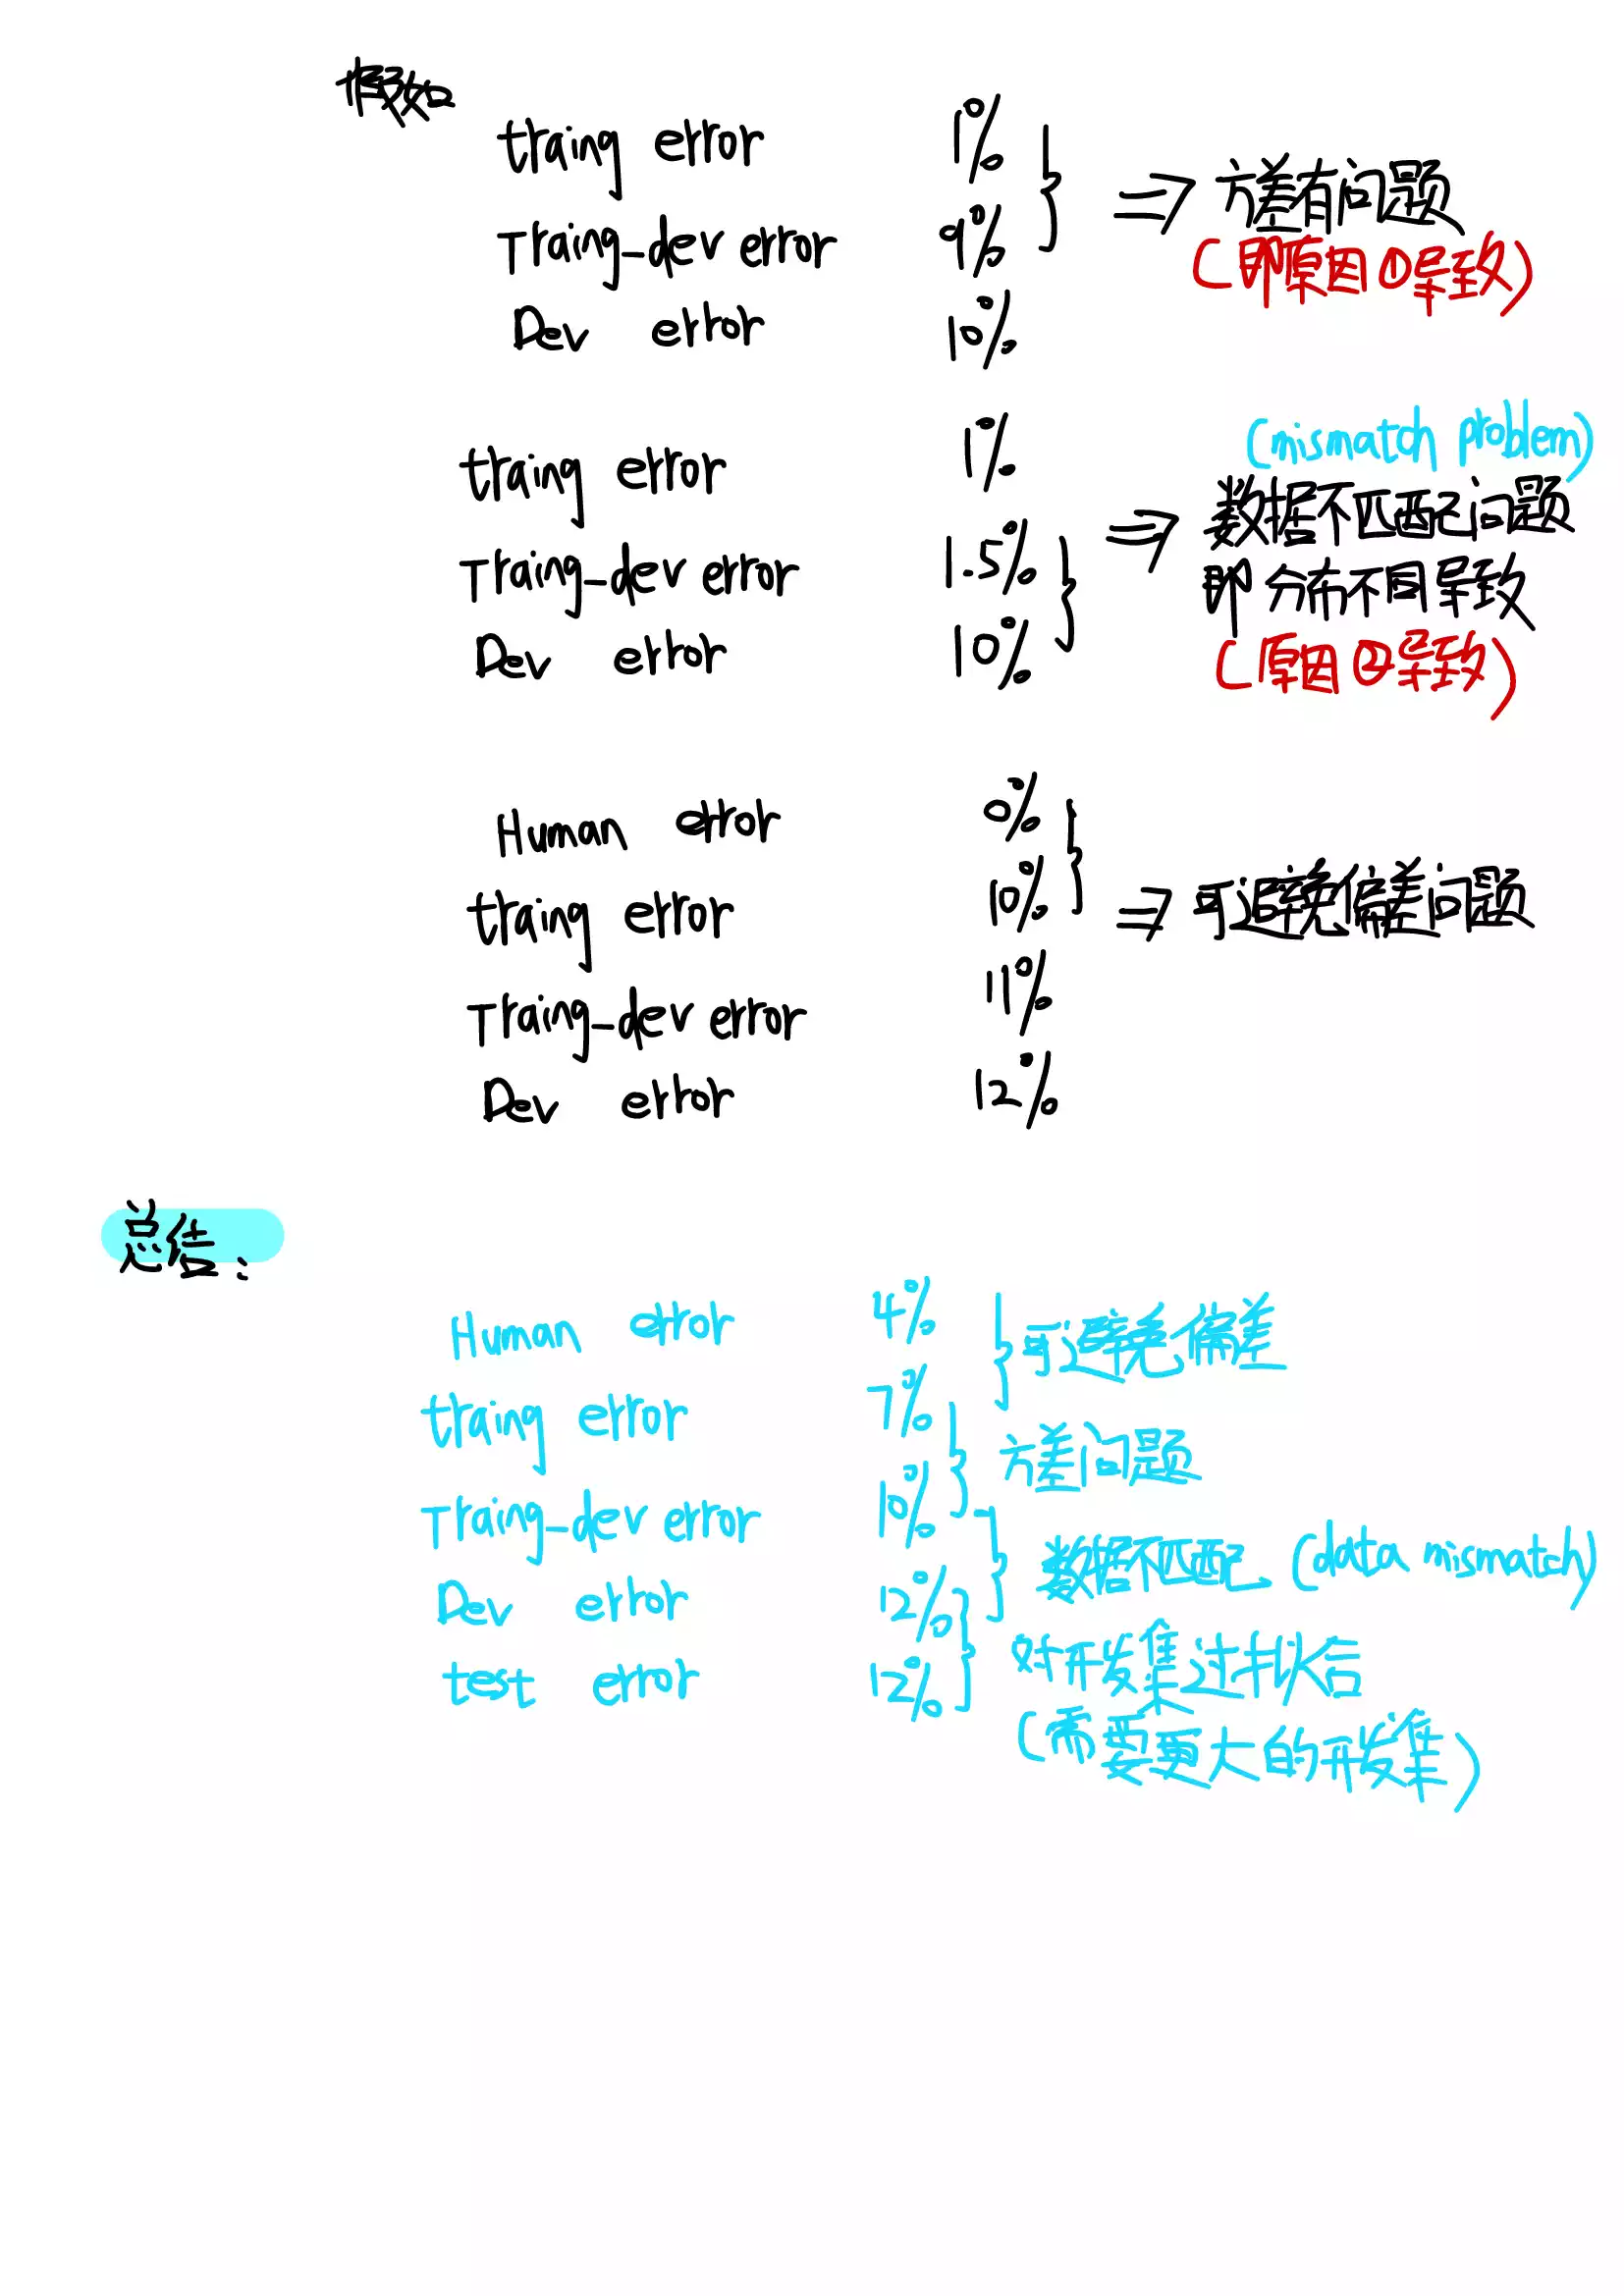 假如
traing error 1%
Traing-dev error 9%
Dev error 10%
⇒ 方差有问题
(即原因①导致)
traing error 1%
Traing-dev error 1.5%
Dev error 10%
(mismatch problem)
⇒ 数据不匹配问题
即分布不同导致
(原因②导致)
Human error 0%
traing error 10%
Traing-dev error 11%
Dev error 12%
⇒ 可避免偏差问题
总结:
Human error 4%
traing error 7%
Traing-dev error 10%
Dev error 12%
test error 12%
可避免偏差
方差问题
数据不匹配 (data mismatch)
对开发集过拟合
(需要更大的开发集)